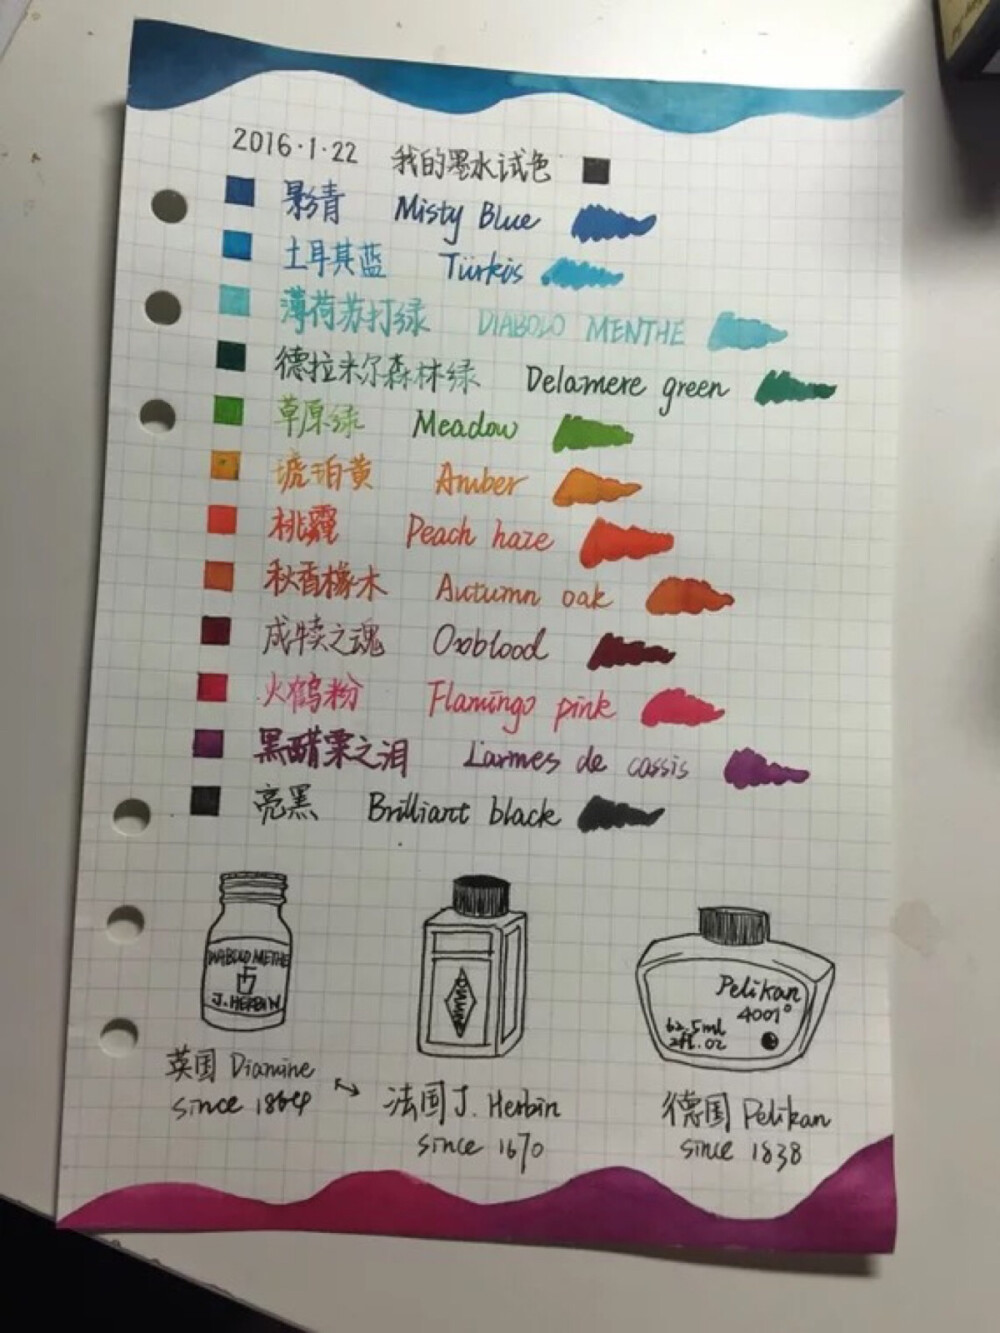 2016·1·22 我的墨水试色
影青 Misty Blue
土耳其蓝 Türkis
薄荷苏打绿 DIABOLO MENTHE
德拉米尔森林绿 Delamere green
草原绿 Meadow
琥珀黄 Amber
桃霾 Peach haze
秋香橡木 Autumn oak
成犊之魂 Oxblood
火鹤粉 Flamingo pink
黑醋栗之泪 Larmes de cassis
亮黑 Brilliant black
DIABOLO METHE
J. HERBIN
DIAMINE
Pelikan
4001°
62.5ml
2fl.oz
英国 Diamine
since 1864
法国 J. Herbin
since 1670
德国 Pelikan
since 1838